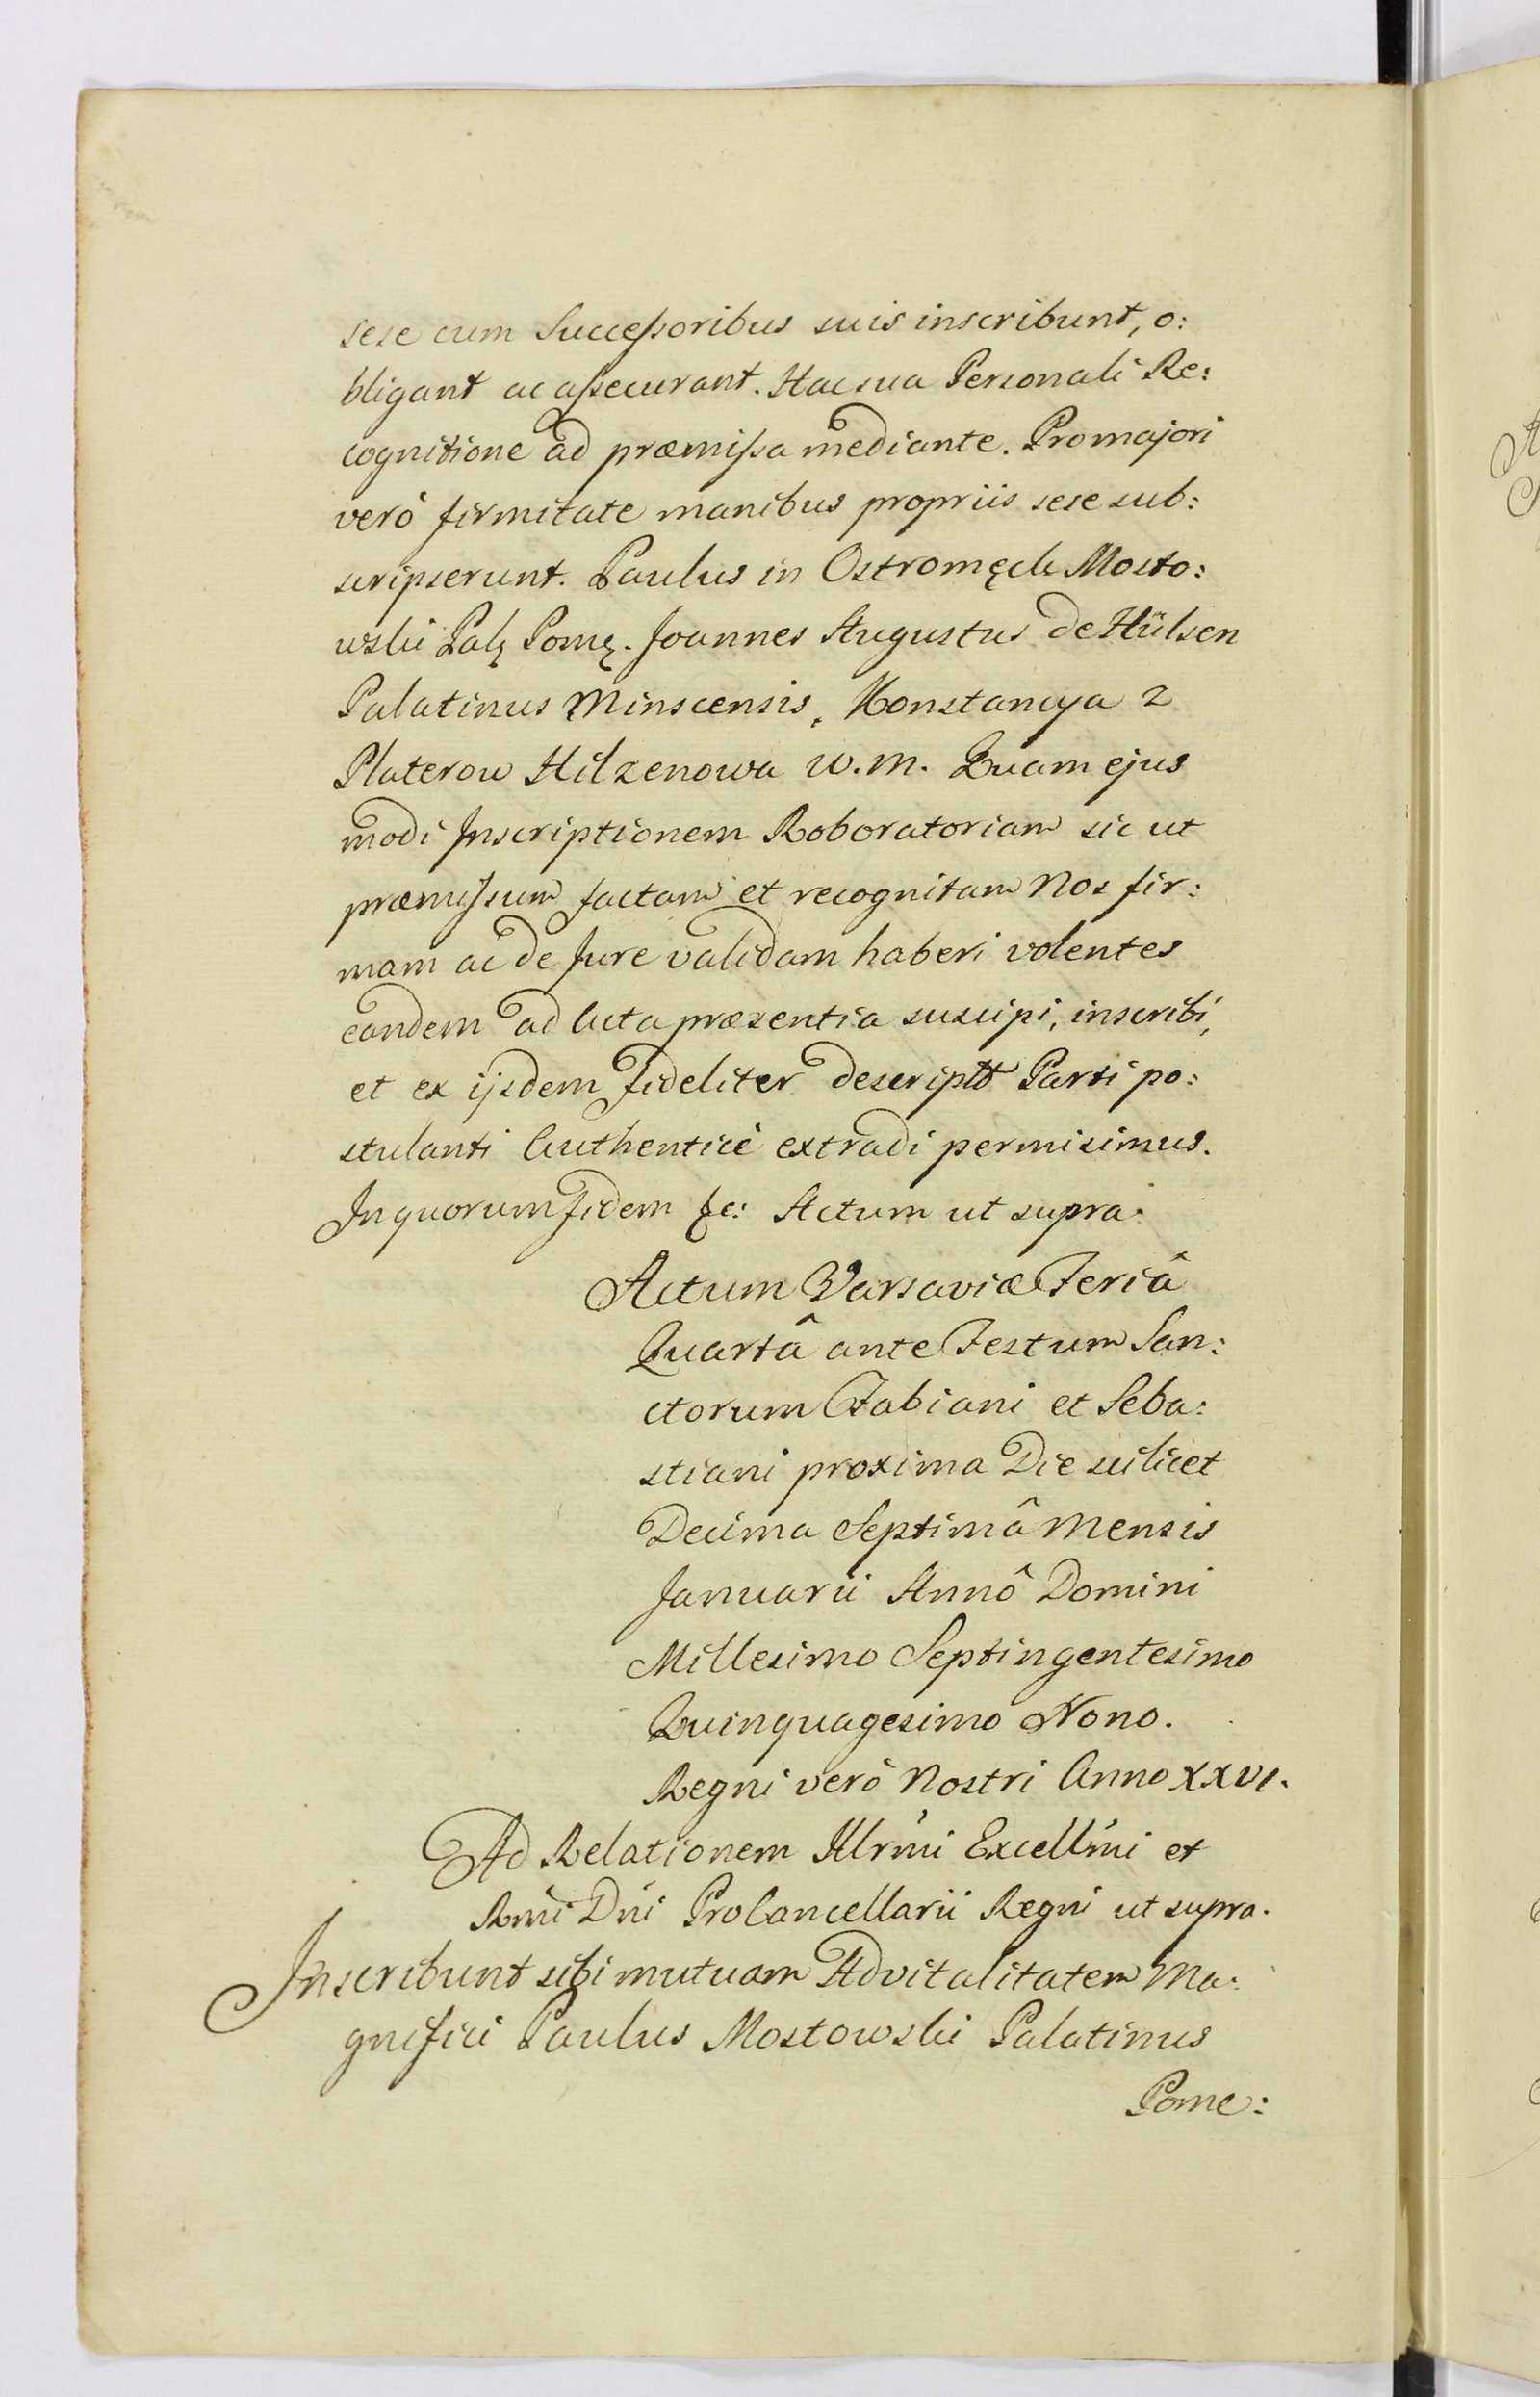 sese cum Successoribus suis inscribunt, o:
bligant ac assecurant. Hac sua Personali Re:
cognitione ad præmissa mediante. Pro majori
verò firmitate manibus propriis sese sub:
scripserunt. Paulus in Ostromęck Mosto:
wski Palę Pomę. Joannes Augustus de Hülsen
Palatinus Minscensis, Konstancya z
Platerow Hilzenowa W. M. Quam ejus
modi Inscriptionem Roboratoriam sic ut
præmissum factam et recognitam Nos fir:
mam ac de Jure validam haberi volentes
eandem ad Acta præsentia suscipi, inscribi,
et ex ijsdem fideliter descriptã Parti po:
stulanti Authenticè extradi permisimus.
In quorum fidem &c: Actum ut supra.
Actum Varsaviæ Feriâ
Quartâ ante Festum San:
ctorum Fabiani et Seba:
stiani proxima Die scilicet
Decima Septimâ Mensis
Januarii Annô Domini
Millesimo Septingentesimo
Quinquagesimo Nono.
Regni verò Nostri Anno XXVI.
Ad Relationem Illrmi Excellmi et
Rmi Dni ProCancellarii Regni ut supra.
Inscribunt sibi mutuam Advitalitatem Ma:
gnifici Paulus Mostowski Palatinus
Pome: